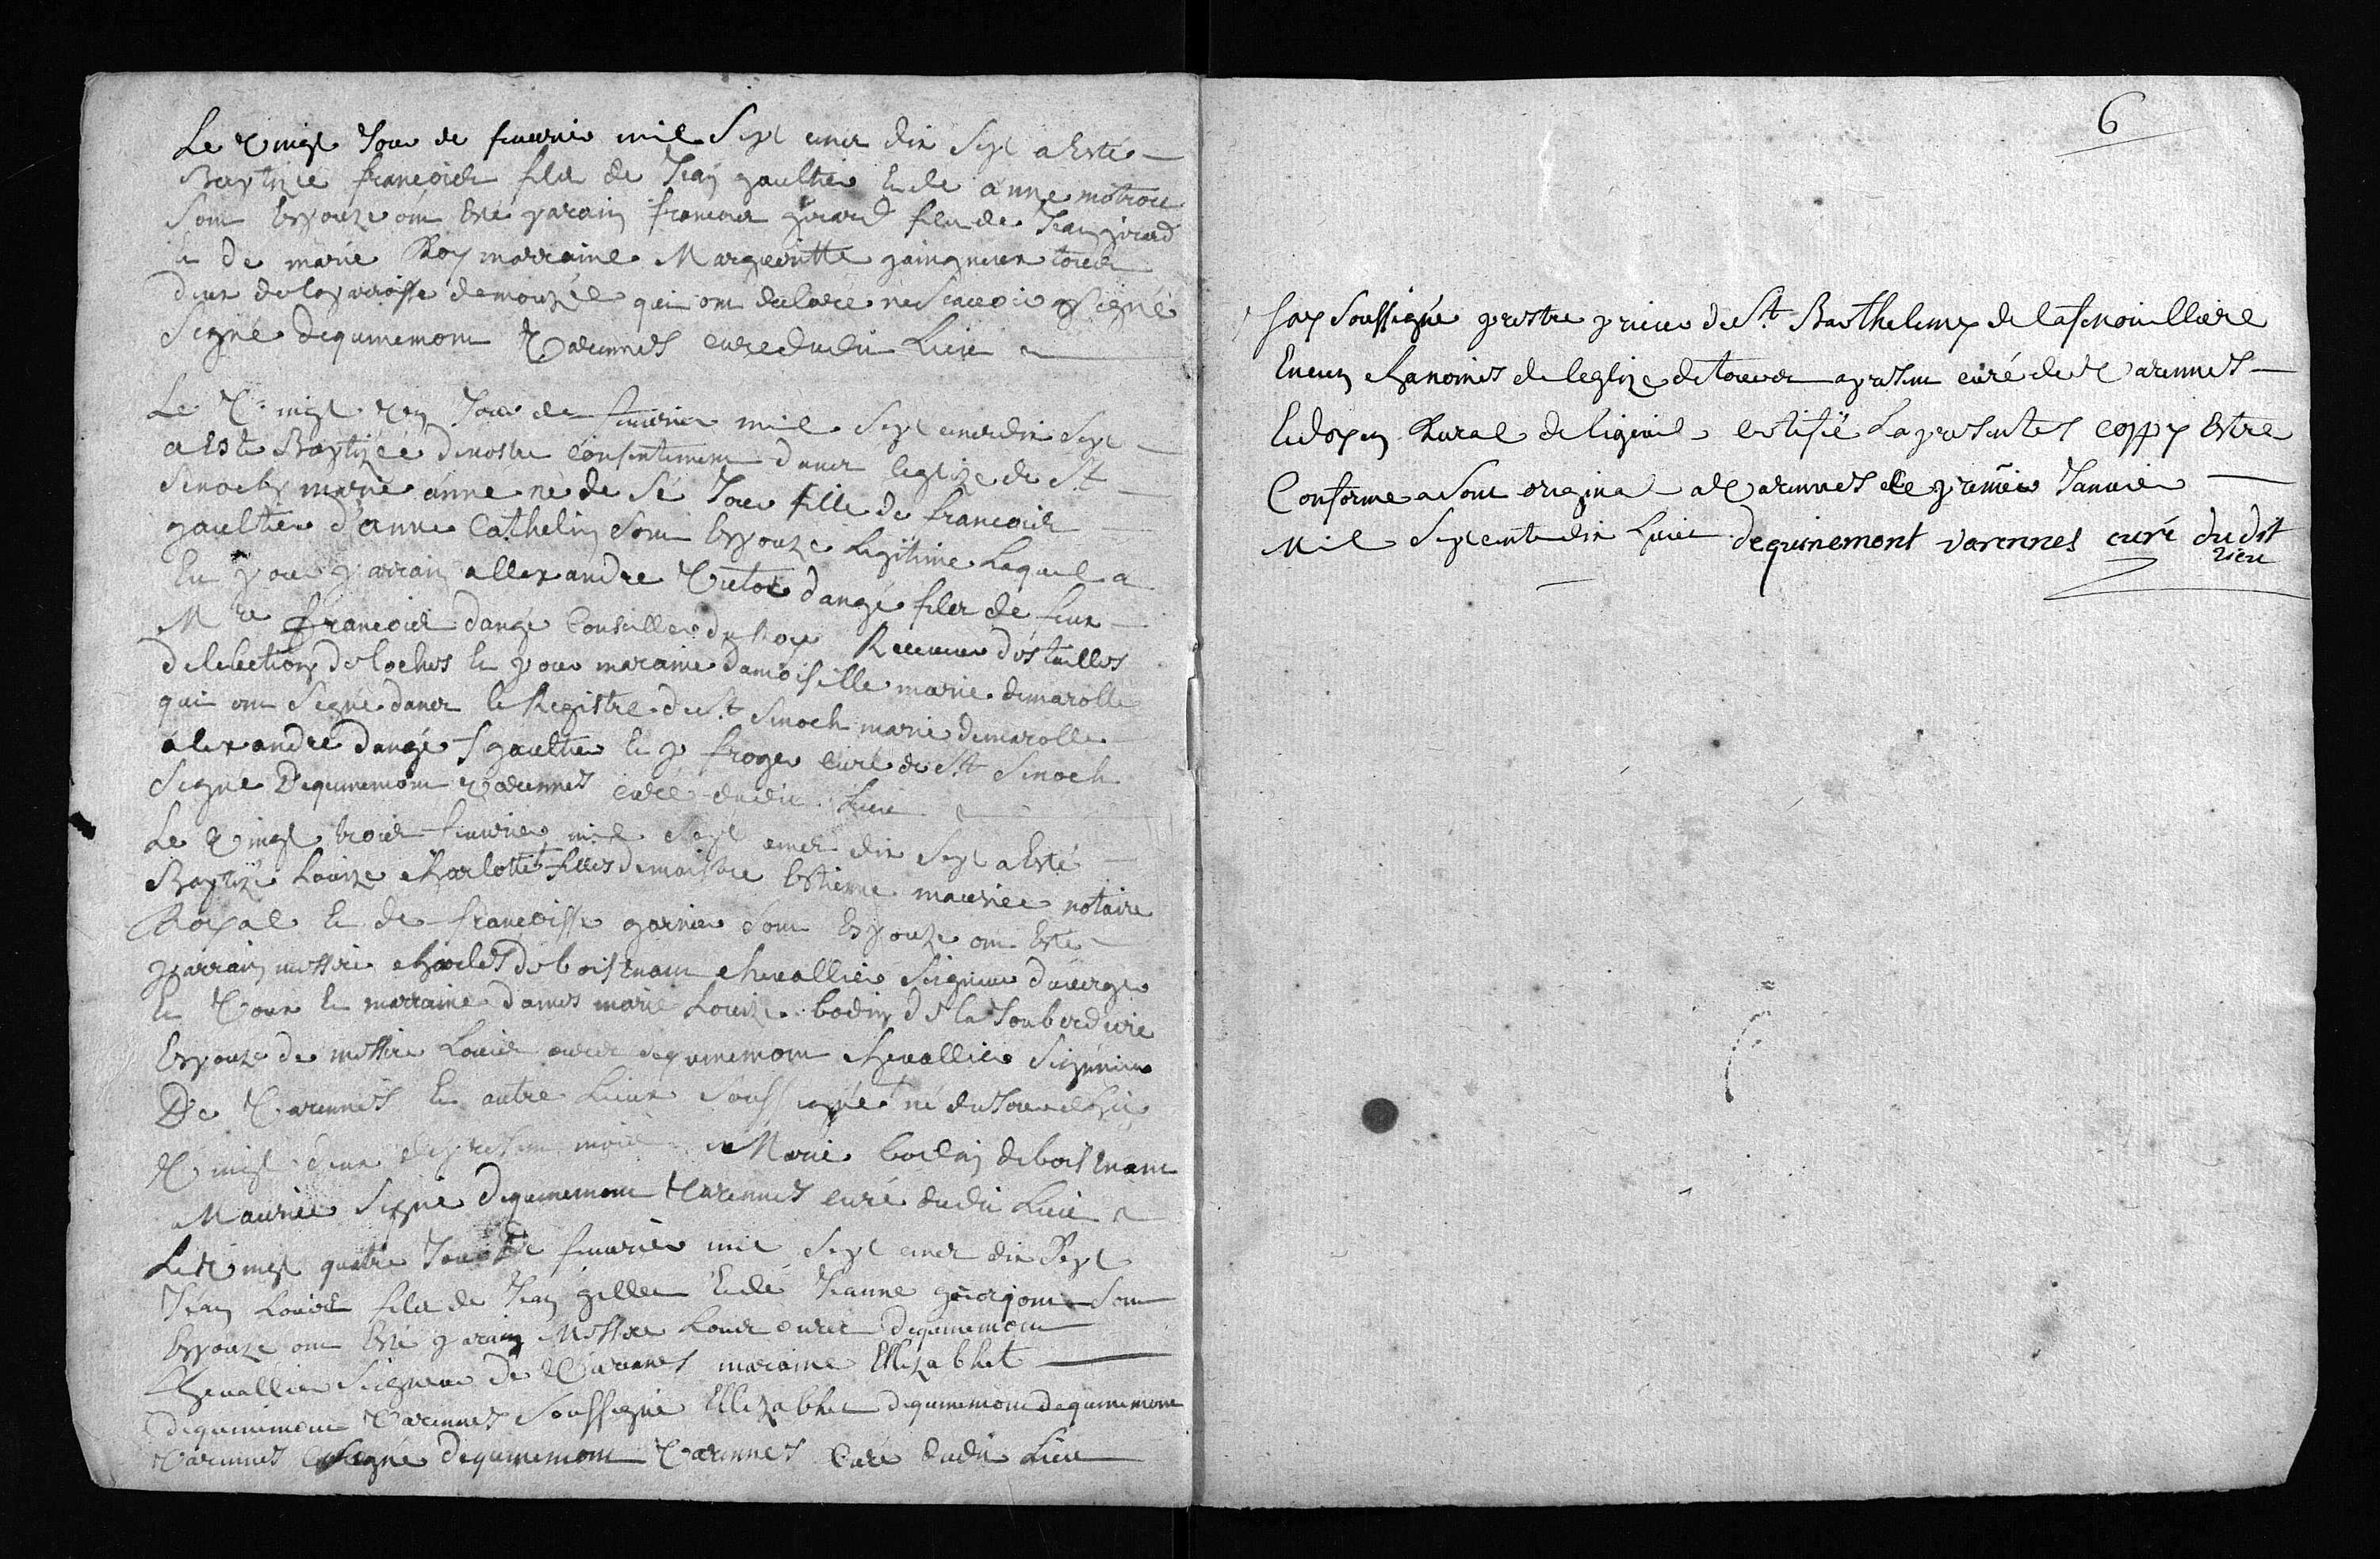 Le vingt Jour de feuvrier mil Sept cents dix Sept a Esté
Baptizée francois fils de Jean gaultier Et de anne
Son Espouze ont Esté parain francois girard fils de Jean girard
Et de marie Roy marraine Margueritte tous
deux de la parroisse de mouzé qui ont declaré ne Scavoir Signé
Signé dequinemont Varennes curé dudit Lieu
Le Vingt un Jour de feuvrier mil Sept cents dix Sept
a Esté Baptizée de nostre consentiment dans leglize de St
Senoch marie anne né de Se Jour fille de francois
gaultier d'anne Cathelin Son Espouze Legitime Laquel a
Eu pour parrain allexandre Victor dangé fils de feux
Mre francois dangé Conseiller du Roy Receveur des tailles
de lelection de loches Et pour maraine damoiselle marie demarolle
qui ont Signé dans le Registre de St Senoch marie demarolle
alexandre dangé f gaultier Et p froger curé de St Senoch
Signé Dequinemont Varennes curé dudit Lieu
Le Vingt trois feuvrier mil Sept cents dix Sept a Esté
Baptizé Louize charlotte filles de maistre Estienne maurice notaire
Royal Et de francoisse garnier Son Espouze ont Esté
parrain messire charles de boisenant chevallier Seigneur
Et Et marraine dames marie Louize bodin de la
Espouze de messire Louis dequinemont chevallier Seigneur
De Varennes Et autre Lieux Soussigné né du Jour
Vingt deux du present mois Marie bodin deboisenant
Maurice Signé dequinemont Varennes curé dudit Lieu
Le Vingt quatre Jour De feuvrier mil Sept cents dix Sept
Jean Louis fils de Jean gilles Et de Jeanne Son
Espouze ont Esté parain Messire Louis dequinemont
Chevallier Seigneur De Varennes maraine Ellizabhet
dequinemont Varennes Soussigné Ellizabhet dequinemont dequinemont
Varennes Signé dequinemont Varennes Curé dudit Lieu
6
Jay Soussigné prestre prieur de St Barthelemy de lafenouilliere
chanoines de leglize de tours a present curé de Varennes
Et doyen Rural de ligueil certifié La presentes coppy Estre
Conforme a Son original a Varennes le premier Janvier
Mil Sept cents dix huict dequinemont varennes curé du dit
lieu